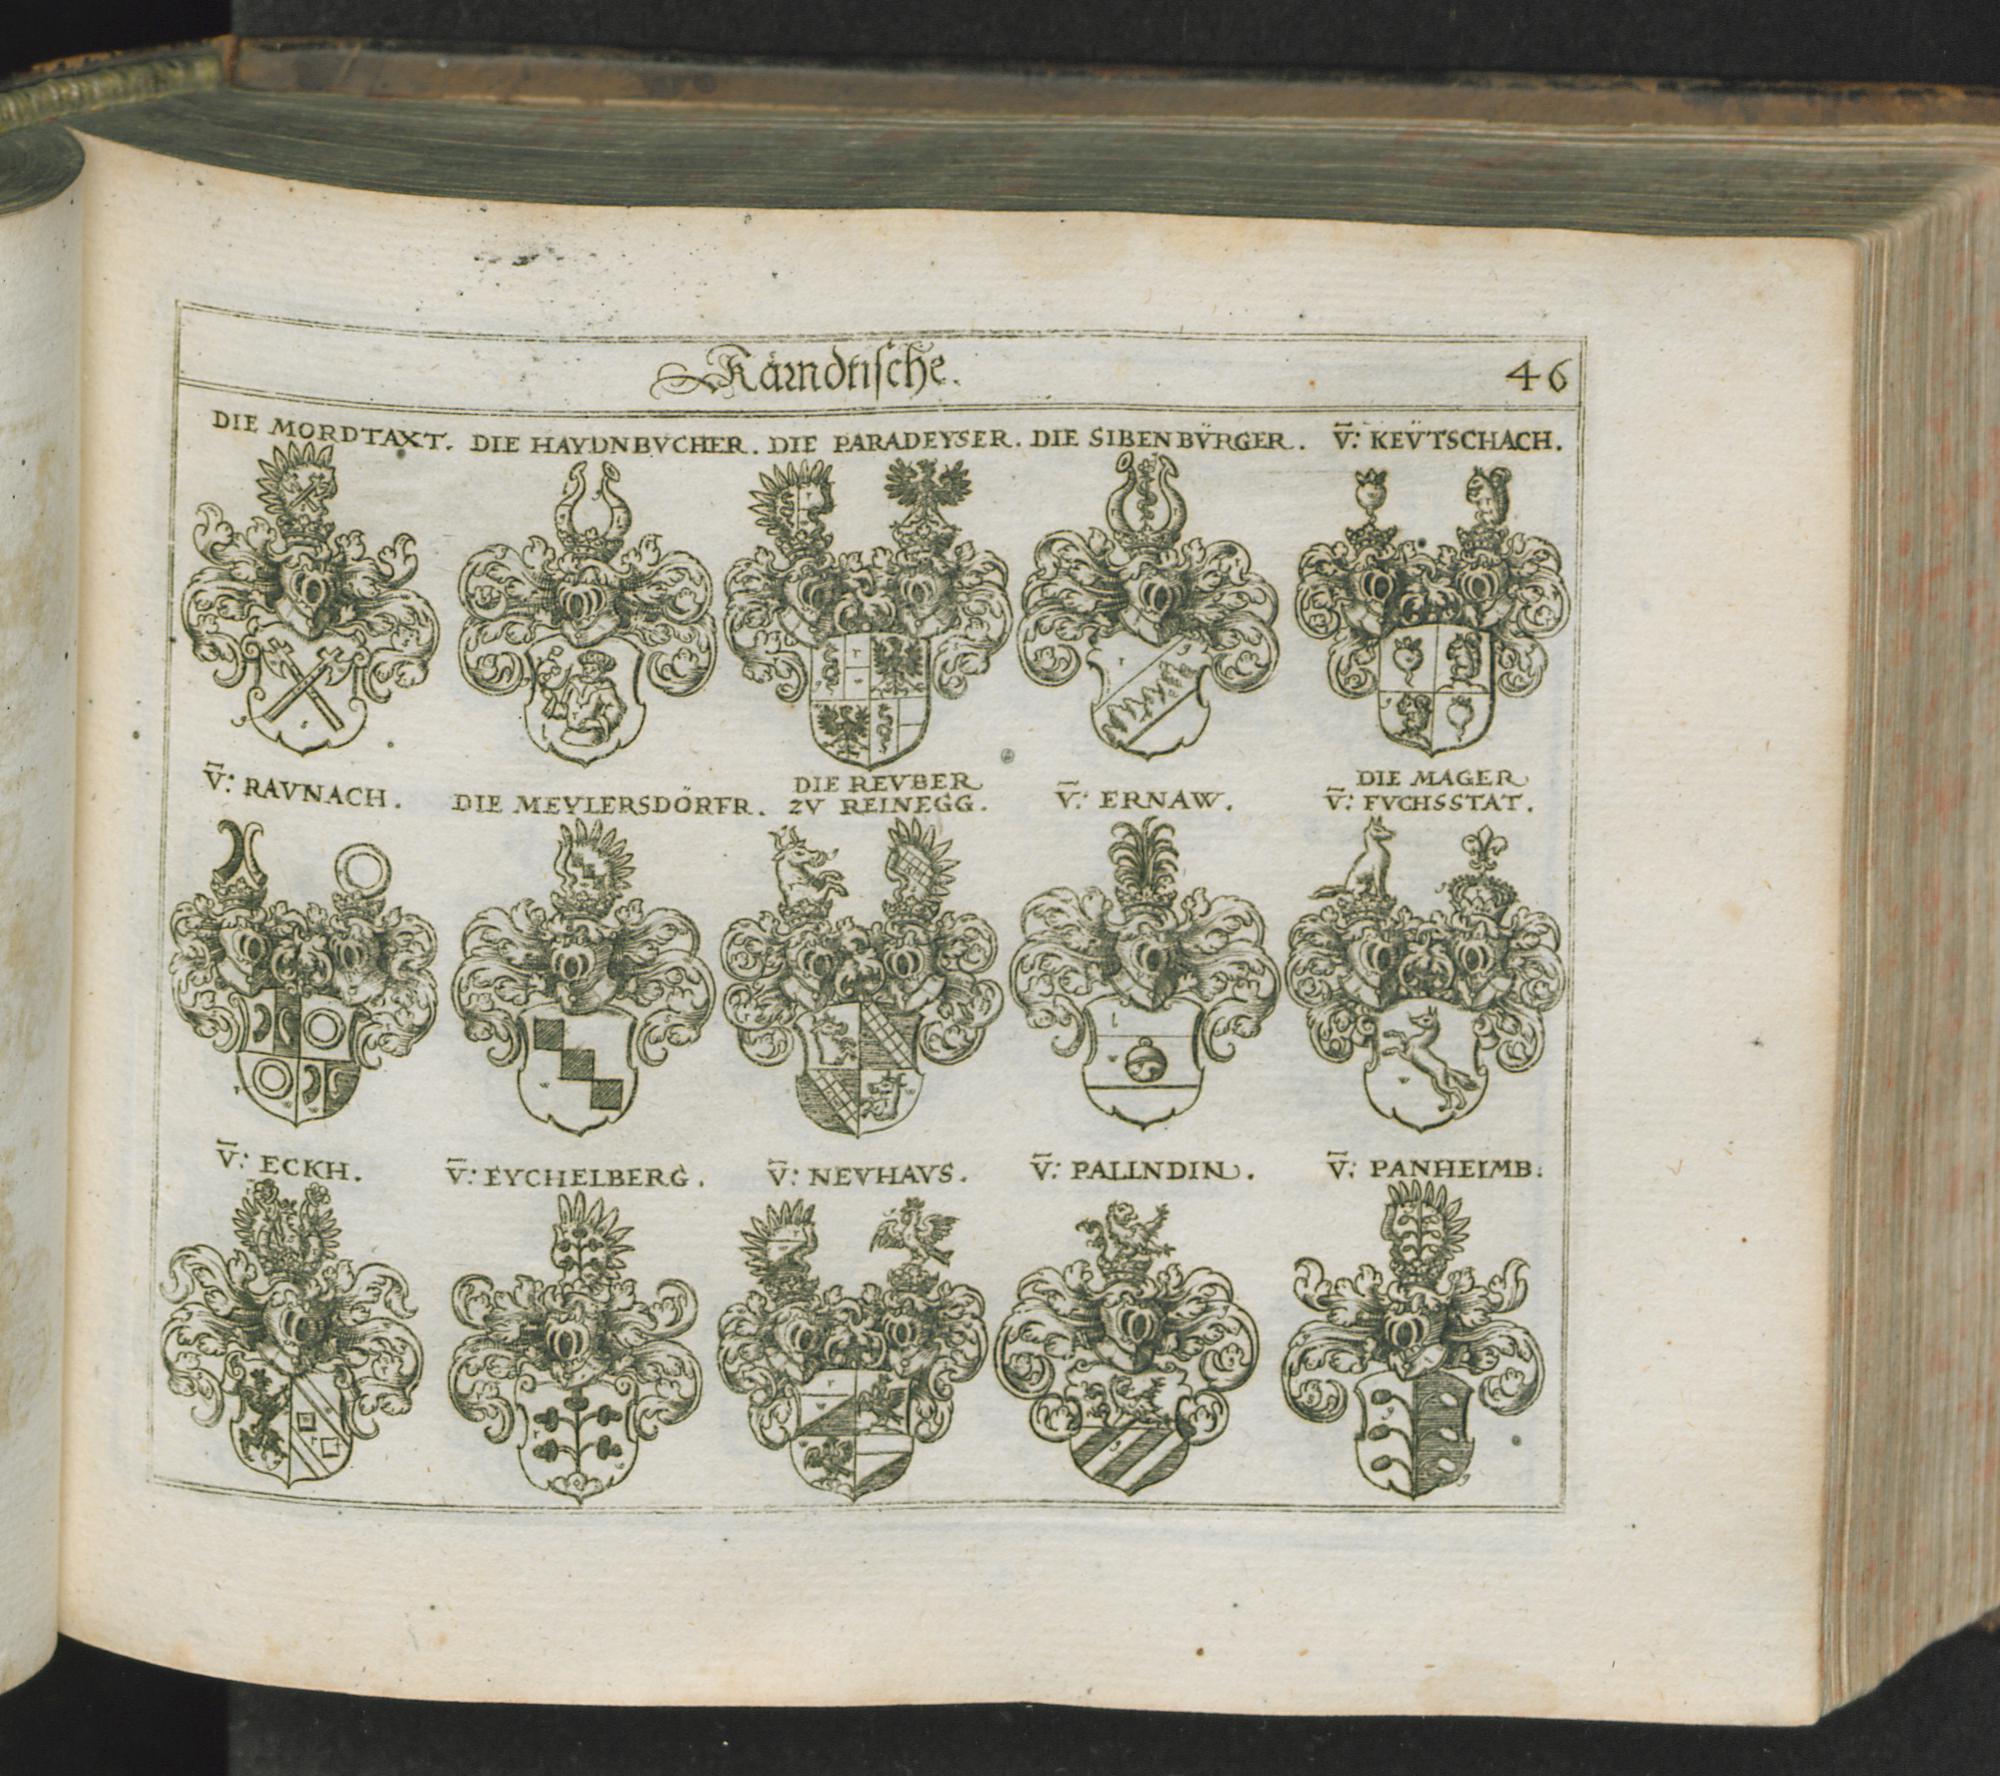 Kärndtische.
46
DIE MORDTAXT. DIE HAYDNBVCHER. DIE PARADEYSER. DIE SIBENBÜRGER. V̄: KEÜTSCHACH.
V̄: RAVNACH. DIE MEYLERSDÖRFR. DIE REVBER ZV REINEGG. V̄: ERNAW. DIE MAGER V̄: FVCHSSTAT.
V̄: ECKH. V̄: EYCHELBERG. V̄: NEVHAVS. V̄: PALLNDIN. V̄: PANHEIMB.